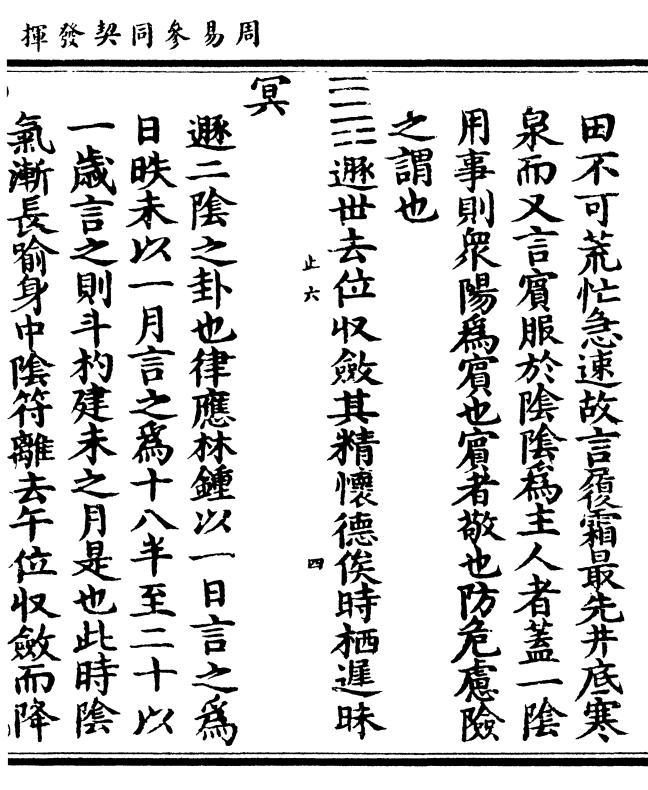 周易參同契發揮
田不可荒忙急速故言履霜最先井底寒
泉而又言賔服於陰陰爲主人者蓋一陰
用事則衆陽爲賔也賔者敬也防危慮險
之謂也
䷠遯世去位收斂其精懷德俟時栖遲昧
止六
四
冥
遯二陰之卦也律應林鍾以一日言之爲
日昳未以一月言之爲十八半至二十以
一歲言之則斗杓建未之月是也此時陰
氣漸長喻身中陰符離去午位收斂而降